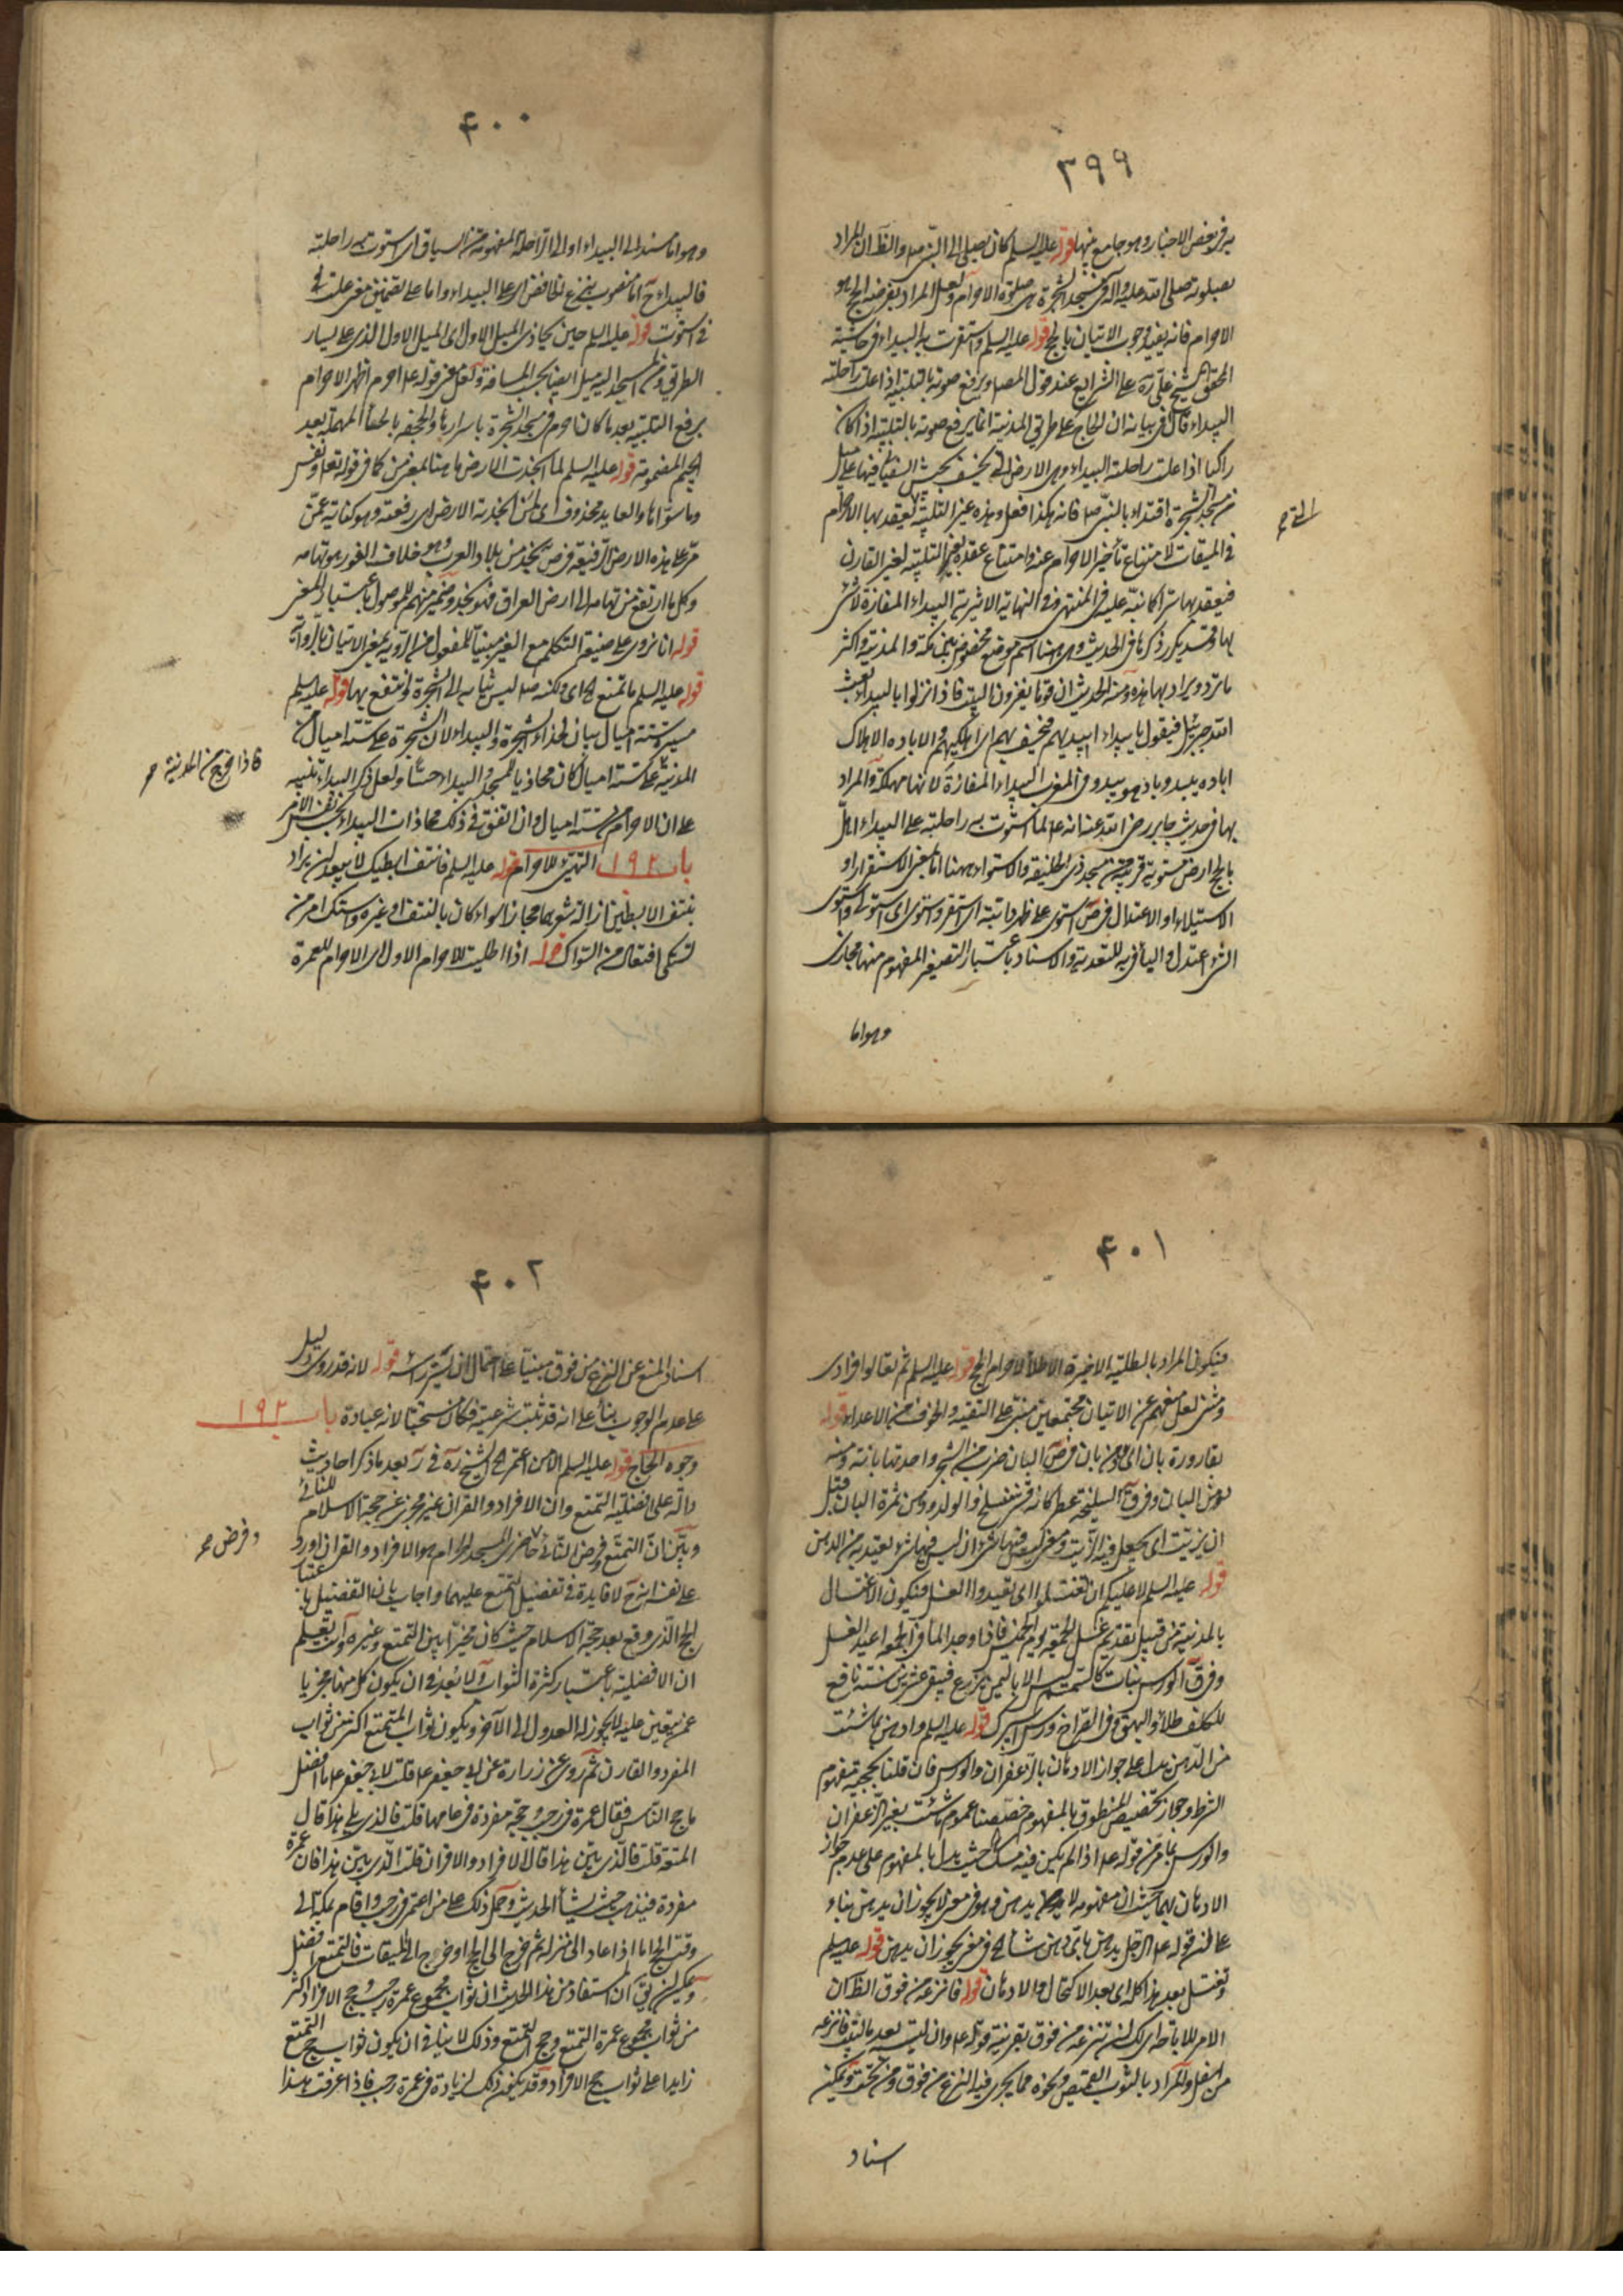 ٣٩٩
به فى بعض الاخبار وهو جامع بينها قوله عليه السلم كان يصلى الى الشمس والظ ان المراد
بصلوته صلى الله عليه وآله فى مسجد الشجرة هى صلوة الاحرام ولعل المراد بفريضة الحج هو
الاحرام فانه يفيد وجوب الاتيان بالحج قوله عليه السلم واستقرت به البيداء فى حاشية
المحقق الشيخ على ره على الشرايع عند قول المصا ويرفع صوته بالتلبية اذا علت راحلته
البيداء قال فى بيانه ان الحاج على طريق المدينة انما يرفع صوته بالتلبية اذا كان
راكبا اذا علت راحلته البيداء وهى الارض التى يخسف بجيش السفيانى فيها على ميل
من مسجد الشجرة اقتداء بالنبى ص فانه هكذا فعل وهذه غير التلبية التى يعقد بها الاحرام
فى الميقات لامتناع تأخير الاحرام عنه وامتناع عقده بغير التلبية لغير القارن
فيعقد بها سرا كما نبه عليه فى المنتهى وفى النهاية الاثيرية البيداء المفازة لا شئ
بها وقد تكرر ذكرها فى الحديث وهى ههنا اسم موضع مخصوص بين مكة والمدينة واكثر
ما ترد ويراد بها هذه ومنه الحديث ان قوما يغزون البيت فاذا نزلوا بالبيداء بعث
الله جبرئيل فيقول يا بيداء ابيديهم فتخسف بهم اى اهلكيهم والابادة الاهلاك
اباده يبيده وباد هو يبيد وفى المغرب البيداء المفازة لانها مهلكة والمراد
بها فى حديث جابر رضى الله عنه انه ع لما استوت به راحلته على البيداء اهل
بالحج ارض مستوية قريبة من مسجد ذى الحليفة والاستواء ههنا اما بمعنى الاستقرار او
الاستيلاء او الاعتدال فى ص استوى على ظهر دابته اى استقر واستوى اى استولى واستوى
الشئ اعتدل والباء فى به للتعدية والاسناد باعتبار التضمين المفهوم منها مجازى
وهو اما
٤٠٠
وهو اما مسند الى البيداء او الى الراحلة المفهومة من السياق اى استوت به راحلته
فالبيداء ح اما منصوب بنزع الخافض اى على البيداء واما على تضمين معنى علت
فى استوت قوله عليه السلم حين يحاذى الميل الاول اى الميل الاول الذى على يسار
الطريق ومن المسجد اليه ميل ايضا بحسب المسافة ولعل معنى قوله ع احرم اظهر الاحرام
برفع التلبية بعد ما كان احرم فى مسجد الشجرة باسرارها والجحفة بالحاء المهملة بعد
الجيم المضمومة قوله عليه السلم لما انجدت الارض ما هنا بمعنى من كما فى قوله تعالى ونفس
وما سواها والعايد محذوف اى لمن انجدته الارض اى رفعته وهو كناية عمن
مر على هذه الارض الرفيعة فى ص نجد من بلاد العرب وهو خلاف الغور هو تهامه
وكل ما ارتفع من تهامه الى ارض العراق فهو نجد وضمير منهم للموصول باعتبار المعنى
قوله انا نروى على صيغة المتكلم مع الغير مبنيا للمفعول من الروية بمعنى الاتيان بالرواية
قوله عليه السلم ما تمتع به اى ولكنه ص لبس ثيابه الى الشجرة وتمتع بها قوله عليه السلم
مسيرة ستة اميال بيان لحذاء الشجرة والبيداء لان الشجرة على ستة اميال من
المدينة على ستة اميال كان محاذيا للمسجد والبيداء حسا ولعل ذكر البيداء تنبيه
فاذا خرج من المدينة صح
على ان الاحرام من ستة اميال وان اتفق فى ذلك محاذات البيداء بحسب نفس الامر
باب ١٩٢ التهيؤ للاحرام قوله عليه السلم فانتف ابطيك لا يبعد ان يراد
بنتف الابطين ازالة شعرهما مجازا سواء كان بالنتف او غيره واستك امر من
استكى افتعال من السواك قوله اذا اطليت للاحرام الاول اى الاحرام للعمرة
٤٠١
فيكون المراد بالطلية الاخيرة الاطلاء لاحرام الحج قوله عليه السلم ثم تعالوا فرادى
ومثنى لعل منعهم عن الاتيان مجتمعين مبنى على التقية والخوف من الاعداء قوله
بقارورة بان اى دهن بان فى ص البان ضرب من الشجر واحدتها بانة ومنه
دهن البان وفى ق السليخة عطر كانه قشر منسلخ والولد ودهن ثمرة البان قبل
ان يزيّت اى يجعل فيه الزيت ومعنى ليس فيها شئ ان ليس فيها شئ يعتد به من الدهن
قوله عليه السلم لا عليكم ان تغتسلوا اى تعيدوا الغسل فيكون الاغتسال
بالمدينة من قبيل تقديم غسل الجمعة يوم الخميس فاذا وجد الماء فى الجمعة اعيد الغسل
وفى ق الورس نبات كالسمسم ليس الا باليمن يزرع فيبقى عشرين سنة نافع
للكلف طلاء والبهق وفى القراح ورس اسرك قوله عليه السلم وادهن بما شئت
من الدهن يدل على جواز الادهان بالزعفران والورس فان قلنا بحجية مفهوم
الشرط وجواز تخصيص المنطوق بالمفهوم خصصنا عموم ما شئت بغير الزعفران
والورس بما مر من قوله ع اذا لم يكن فيه مسك حيث يدل بالمفهوم على عدم جواز
الادهان بهما حيث ان مفهومه لا يدهن وهو فى معنى لا يجوز ان يدهن بناء
على ان قوله ع الرجل يدهن باى دهن شاء فى معنى يجوز ان يدهن قوله عليه السلم
وتغتسل بعد هذا كله اى بعد الاكتحال والادهان قوله فانزعه من فوق الظ ان
الامر للاباحة اى لك ان تنزعه من فوق بقرينة قوله ع وان لبسته بعد ما لبيت فانزعه
من اسفل والمراد بالثوب القميص ونحوه مما يجرى فيه النزع من فوق ومن تحت ويمكن
اسناد
٤٠٢
اسناد المنع عن النزع من فوق مبنيا على احتمال ان يستر راسه قوله لانه قد روى دليل
على عدم الوجوب بناء على انه قد ثبت شرعيته فكان مستحبا لانه عبادة باب ١٩٣
وجوه الحاج قوله عليه السلم لاهن اعتمر الشيخ ره فى ر بعد ما ذكر احاديث
دالة على افضلية التمتع وان الافراد والقران غير مجزى عن حجة الاسلام للنائى
وبين ان التمتع وفرض النائى حاضرى المسجد الحرام هو الافراد والقران اورد
وفرض صح
على نفسه انه ح لا فايدة فى تفضيل التمتع عليهما واجاب بان التفضيل باعتبار
الحج الذى وقع بعد حجة الاسلام حيث كان مخيرا بين التمتع وغيره وانت تعلم
ان الافضلية باعتبار كثرة الثواب ولا بعد فى ان يكون كل منها مجزيا
عمن تعين عليه لا يجوز له العدول الى الآخر ويكون ثواب المتمتع اكثر من ثواب
المفرد والقارن ثم روى عن زرارة عن ابى جعفر ع قلت لابى جعفر ع ما افضل
ما حج الناس فقال عمرة فى رجب وحجة مفردة فى عامها قلت فالذى يلى هذا قال
المتعة قلت فالذى يلى هذا قال الافراد والاقران قلت الذى يلى هذا قال عمرة
مفردة فيذهب حيث يشاء الحديث وحمل ذلك على من اعتمر فى رجب واقام بمكة الى
وقت الحج اما اذا عاد الى منزله ثم خرج الى الحج او خرج الى الميقات فالتمتع افضل
ويمكن ان يق ان المستفاد من هذا الحديث ان ثواب مجموع عمرة رجب وحج الافراد اكثر
من ثواب مجموع عمرة التمتع وحج التمتع وذلك لا ينافى ان يكون ثواب حج التمتع
زايدا على ثواب حج الافراد وقد يكون ذلك لزيادة فى عمرة رجب فاذا عرفت هذا